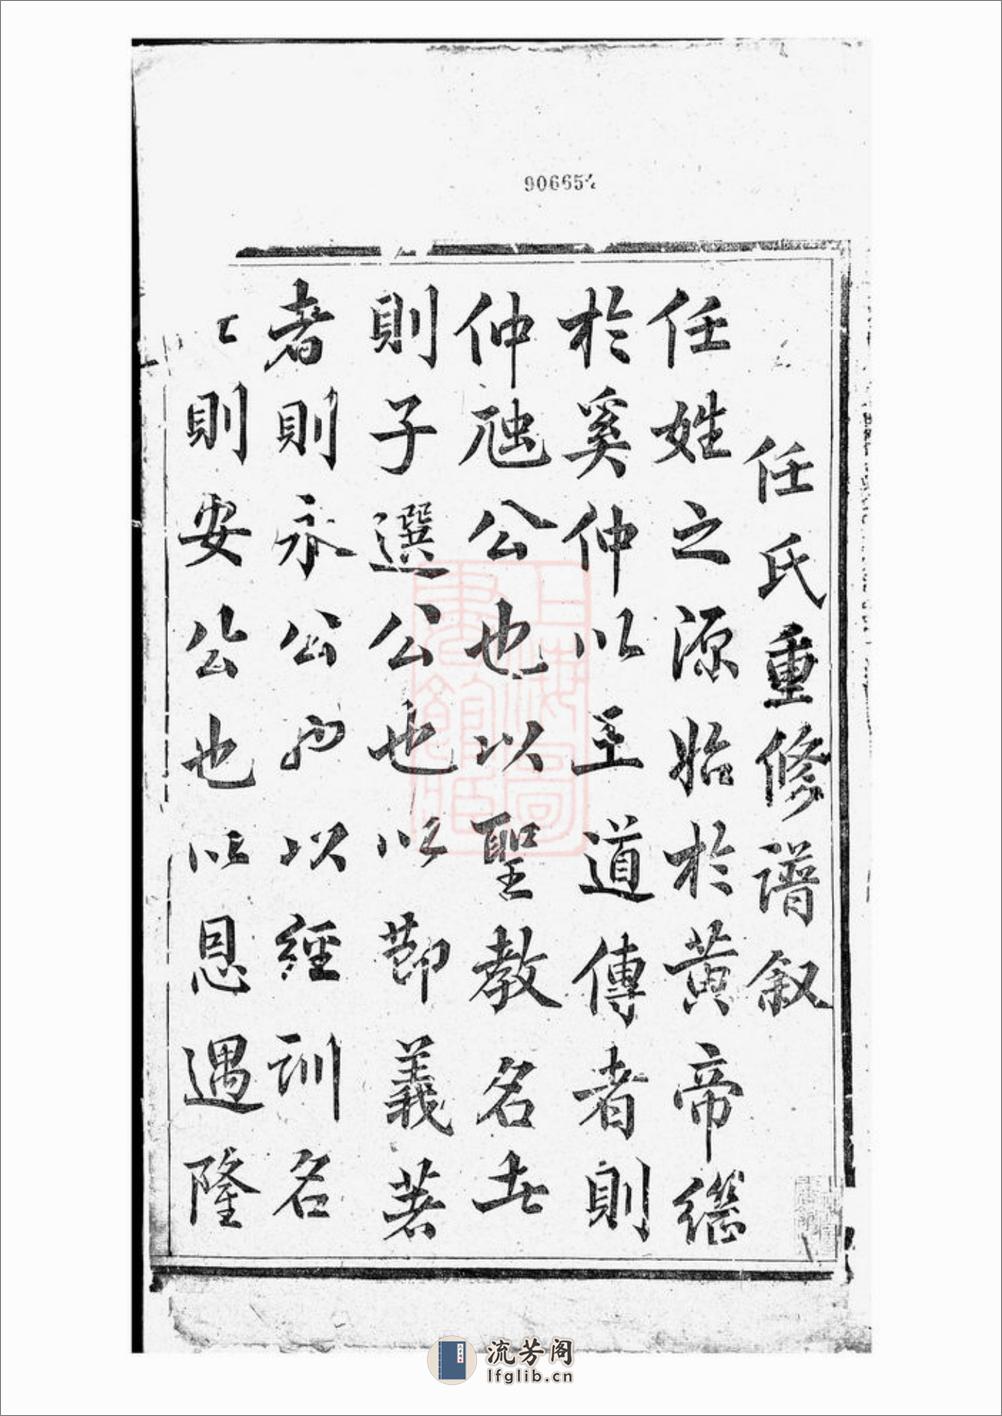 任氏重修譜叙
任姓之源始於黃帝繼
於奚仲以王道傳者則
仲虺公也以聖教名世
則子選公也以節義著
者則永公也以經訓名
則安公也以恩遇隆
906654
上海圖書館藏
流芳阁
lfglib.cn